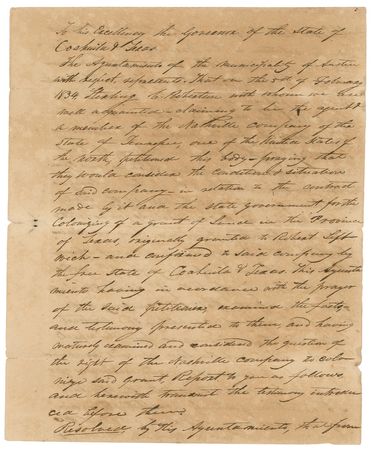 To his Excellency the Governor of the State of
Coahuila & Texas.
The Ayuntamiento of the municipality of Austin
with respect, represents. That on the 5th of February
1834, Sterling C. Robertson with whom we are
well acquainted - claiming to be the agent &
a member of the Nashville company of the
State of Tennessee, one of the United States of
the North, petitioned this body - praying that
they would consider the condition & situation
of said company - in relation to the contract
made by it and the state government for the
Colonizing of a grant of Land in the Province
of Texas, originally granted to Robert Left
wich - and confirmed to said company by
the free State of Coahuila & Texas. This Ayunta
miento having in accordance with the prayer
of the said petitioner, examined the facts -
and testimony presented to them and having
maturely examined and considered the question of
the right of the Nashville company to colo
nize said grant, Report to you as follows,
and herewith transmit the testimony introdu
ced before them.
Resolved by this Ayuntamiento, that from